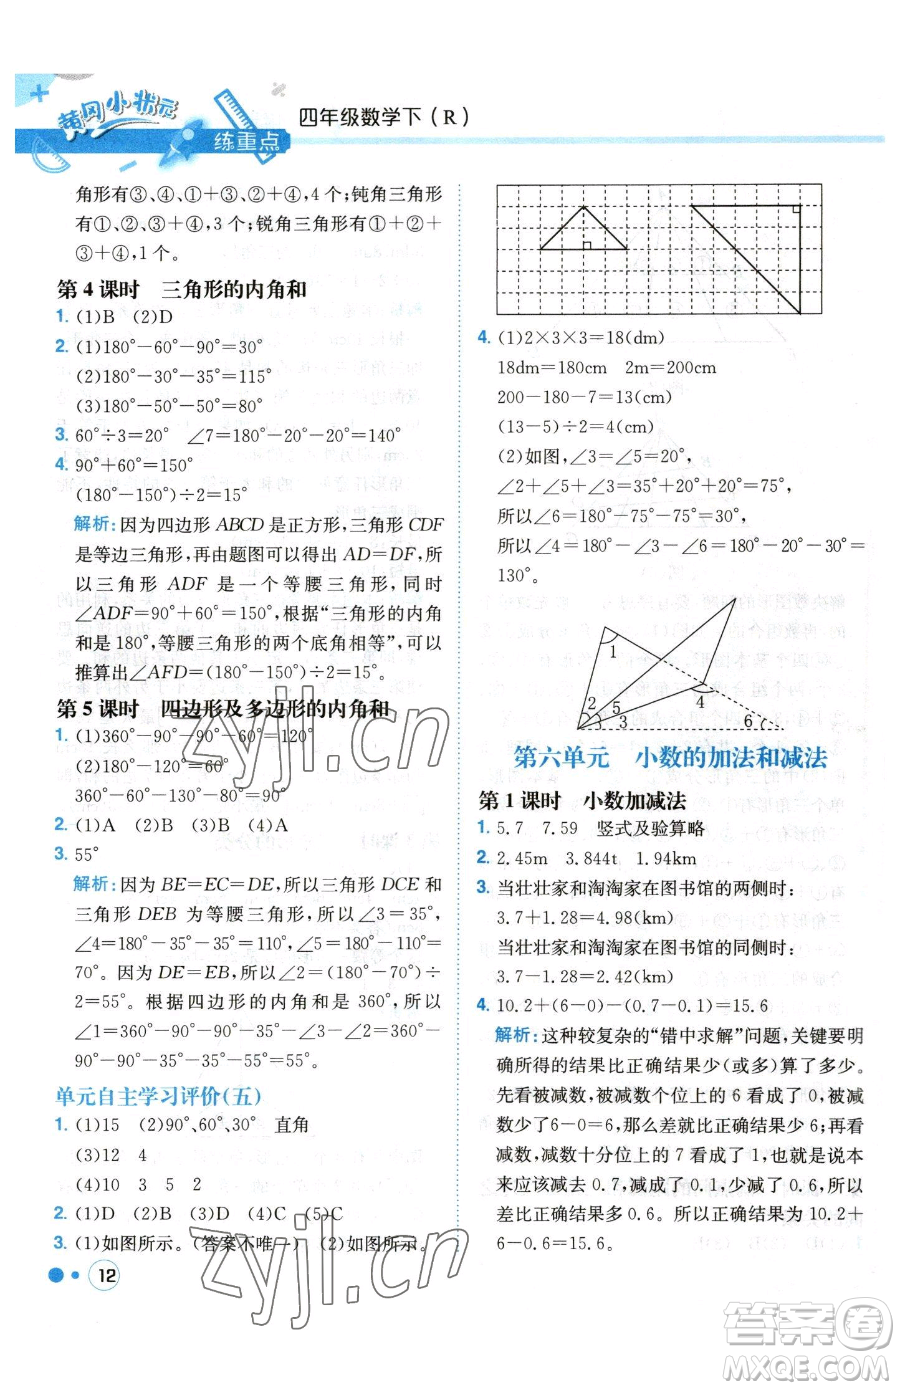 黄冈小状元
练重点
四年级数学下(R)
角形有③、④、①+③、②+④,4个;钝角三角形
有①、②、①+④,3个;锐角三角形有①+②+
③+④,1个。
第4课时 三角形的内角和
1. (1)B (2)D
2. (1)180°-60°-90°=30°
(2)180°-30°-35°=115°
(3)180°-50°-50°=80°
3. 60°÷3=20° ∠7=180°-20°-20°=140°
4. 90°+60°=150°
(180°-150°)÷2=15°
解析:因为四边形ABCD是正方形,三角形CDF
是等边三角形,再由题图可以得出AD=DF,所
以三角形ADF是一个等腰三角形,同时
∠ADF=90°+60°=150°,根据“三角形的内角
和是180°,等腰三角形的两个底角相等”,可以
推算出∠AFD=(180°-150°)÷2=15°。
第5课时 四边形及多边形的内角和
1. (1)360°-90°-90°-60°=120°
(2)180°-120°=60°
360°-60°-130°-80°=90°
2. (1)A (2)B (3)B (4)A
3. 55°
解析:因为BE=EC=DE,所以三角形DCE和
三角形DEB为等腰三角形,所以∠3=35°,
∠4=180°-35°-35°=110°,∠5=180°-110°=
70°。因为DE=EB,所以∠2=(180°-70°)÷
2=55°。根据四边形的内角和是360°,所以
∠1=360°-90°-90°-35°-∠2=360°-90°-
90°-35°-55°=90°。
单元自主学习评价(五)
1. (1)15 (2)90°、60°、30° 直角
(3)12 4
(4)10 3 5 2
2. (1)D (2)D (3)D (4)C (5)C
3. (1)如图所示。(答案不唯一)(2)如图所示。
12
4. (1)2×3×3=18(dm)
18dm=180cm 2m=200cm
200-180-7=13(cm)
(13-5)÷2=4(cm)
(2)如图,∠5=∠6=20°,
∠2+∠5+∠3=35°+20°+20°=75°,
所以∠1=180°-75°-75°=30°。
所以∠4=180°-∠3-∠6=180°-30°-20°=
130°。
1
2 5
3
4
6
第六单元 小数的加法和减法
第1课时 小数加减法
1. 5.7 7.59 竖式及验算略
2. 2.45m 3.844t 1.94km
3. 当壮壮家和淘淘家在图书馆的两侧时:
3.7+1.28=4.98(km)
当壮壮家和淘淘家在图书馆的同侧时:
3.7-1.28=2.42(km)
4. 10.2+(6-0)-(0.7-0.1)=15.6
解析:这种较复杂的“错中求解”问题,关键要明
确所得的结果比正确结果少(或多)算了多少。
先看被减数,被减数个位上的6看成了0,被减数
少了6-0=6,那么差就比正确结果少6;再看
减数,减数十分位上的7看成了1,也就是说本
来应该减去0.7,实际减去了0.1,少减了0.6,所
以差比正确结果多0.6。所以正确结果为10.2+
6-0.6=15.6。
zyjl.cn
zyjl.cn
答案圈
MXQE.COM